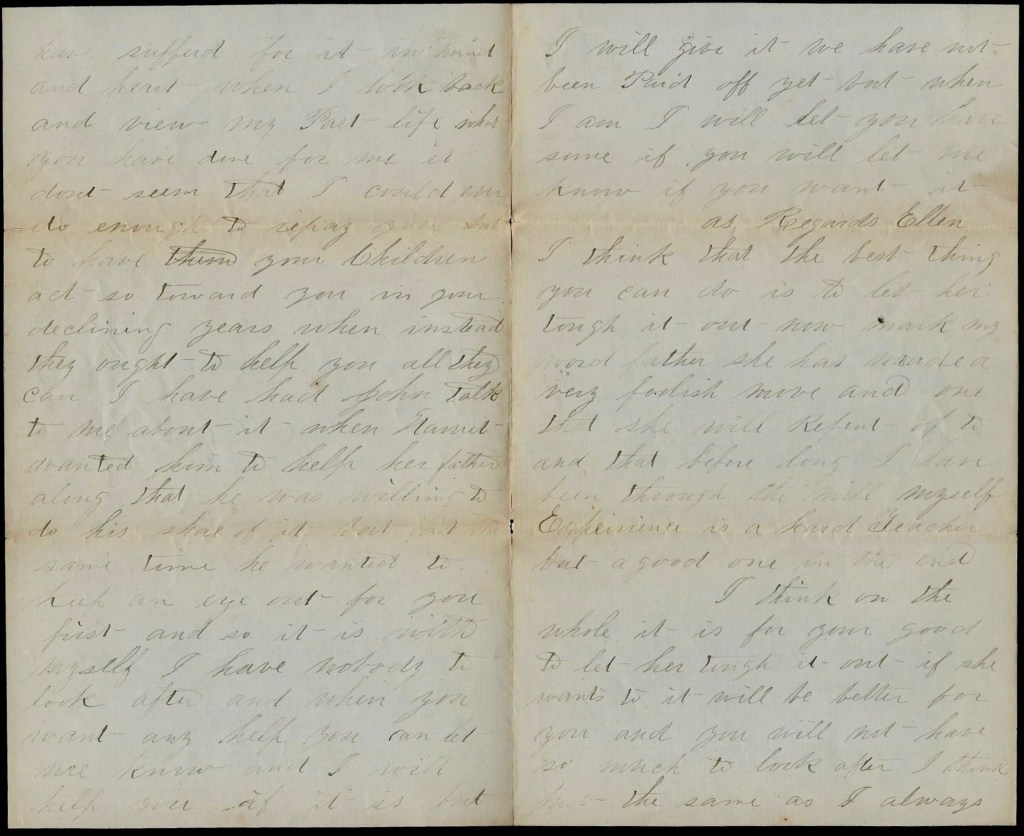 have sufferd for it in mind
and heart when I look back
and view my Past life what
you have done for me it
dont seem that I could ever
do enough to repay you but
to have them your Children
act so toward you in your
declining years when instead
they ought to help you all they
can I have had John talk
to me about it when
wanted him to help her father
along that he was willing to
do his shae of it but at the
same time he wanted to
keep an eye out for you
first and so it is with
myself I have nobody to
look after and when you
want any help you can let
me know and I will
help you if it is but
I will give it we have not
been Paid off yet but when
I am I will let you have
some if you will let me
know if you want it
as Regards Ellen
I think that the best thing
you can do is to let her
tough it out now mark my
word father she has made a
very foolish move and one
that she will Repent of to
and that before long I have
been through the mill myself
Expeirience is a hard Teacher
but a good one in the end
I think on the
whole it is for your good
to let her tough it out if she
wants to it will be better for
you and you will not have
so much to look after I think
just the same as I always